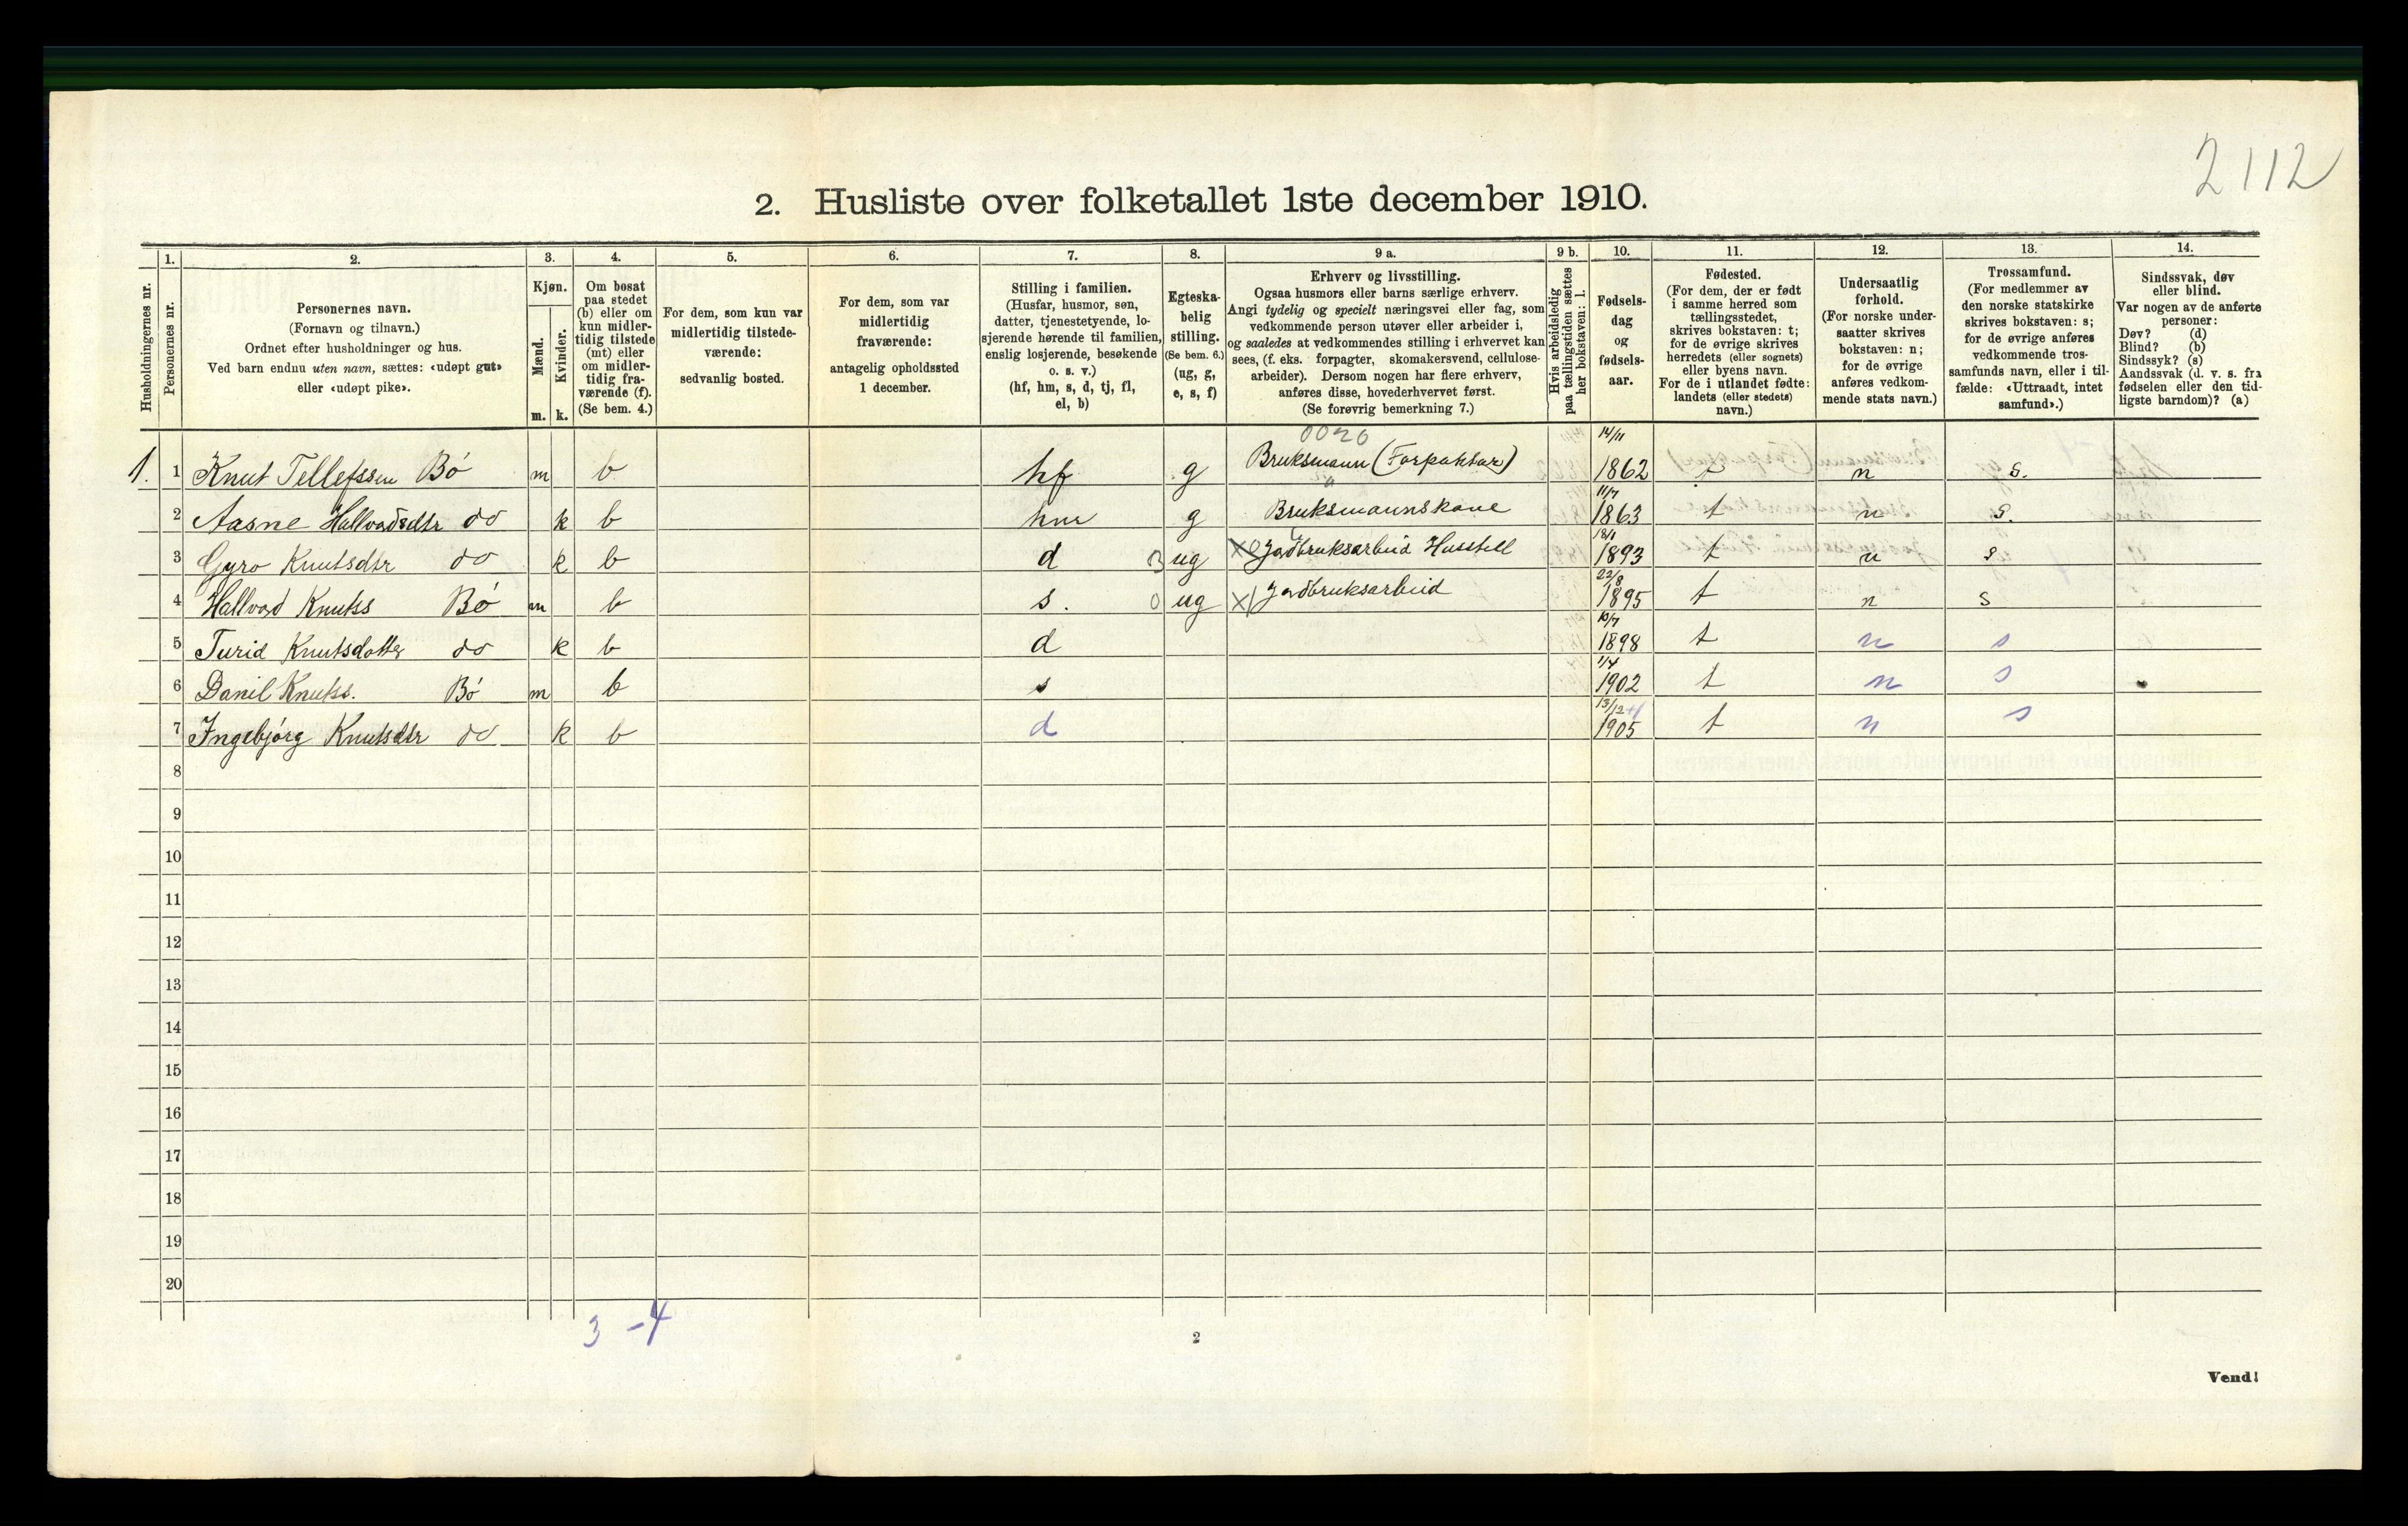 2112
2. Husliste over folketallet 1ste december 1910.
Husholdningernes nr.
1.
Personernes nr.
2.
Personernes navn.
(Fornavn og tilnavn.)
Ordnet efter husholdninger og hus.
Ved barn endnu uten navn, sættes: «udøpt gut»
eller «udøpt pike».
3.
Kjøn.
Mænd.
Kvinder.
m. k.
4.
Om bosat
paa stedet
(b) eller om
kun midler-
tidig tilstede
(mt) eller
om midler-
tidig fra-
værende (f).
(Se bem. 4.)
5.
For dem, som kun var
midlertidig tilstede-
værende:
sedvanlig bosted.
6.
For dem, som var
midlertidig
fraværende:
antagelig opholdssted
1 december.
7.
Stilling i familien.
(Husfar, husmor, søn,
datter, tjenestetyende, lo-
sjerende hørende til familien,
enslig losjerende, besøkende
o. s. v.)
(hf, hm, s, d, tj, fl,
el, b)
8.
Egteska-
belig
stilling.
(Se bem. 6.)
(ug, g,
e, s, f)
9 a.
Erhverv og livsstilling.
Ogsaa husmors eller barns særlige erhverv.
Angi tydelig og specielt næringsvei eller fag, som
vedkommende person utøver eller arbeider i,
og saaledes at vedkommendes stilling i erhvervet kan
sees, (f. eks. forpagter, skomakersvend, cellulose-
arbeider). Dersom nogen har flere erhverv,
anføres disse, hovederhvervet først.
(Se forøvrig bemerkning 7.)
9 b.
Hvis arbeidsledig
paa tællingstiden sættes
her bokstaven: l.
10.
Fødsels-
dag
og
fødsels-
aar.
11.
Fødested.
(For dem, der er født
i samme herred som
tællingsstedet,
skrives bokstaven: t;
for de øvrige skrives
herredets (eller sognets)
eller byens navn.
For de i utlandet fødte:
landets (eller stedets)
navn.)
12.
Undersaatlig
forhold.
(For norske under-
saatter skrives
bokstaven: n;
for de øvrige
anføres vedkom-
mende stats navn.)
13.
Trossamfund.
(For medlemmer av
den norske statskirke
skrives bokstaven: s;
for de øvrige anføres
vedkommende tros-
samfunds navn, eller i til-
fælde: «Uttraadt, intet
samfund».)
14.
Sindssvak, døv
eller blind.
Var nogen av de anførte
personer:
Døv? (d)
Blind? (b)
Sindssyk? (s)
Aandssvak (d. v. s. fra
fødselen eller den tid-
ligste barndom)? (a)
0020
1. 1 Knut Tellefssen Bö m b hf g Bruksmann (Forpaktar) 14/11 1862 t n s.
2 Aasne Hallvadsdtr do k b hm g Bruksmannskone 11/7 1863 t n s.
3 Gyro Knutsdtr do k b d ug Jordbruksarbeid Husstell 18/1 1893 t n s
4 Hallvad Knutss Bö m b s. 0 ug Jordbruksarbeid 22/8 1895 t n s
5 Turid Knutsdatter do k b d 10/7 1898 t n s
6 Danil Knutss. Bö m b s 1/4 1902 t n s
7 Ingebjörg Knutsdtr do k b d 13/12 1905 t n s
8
9
10
11
12
13
14
15
16
17
18
19
20
3 - 4
2
Vend!